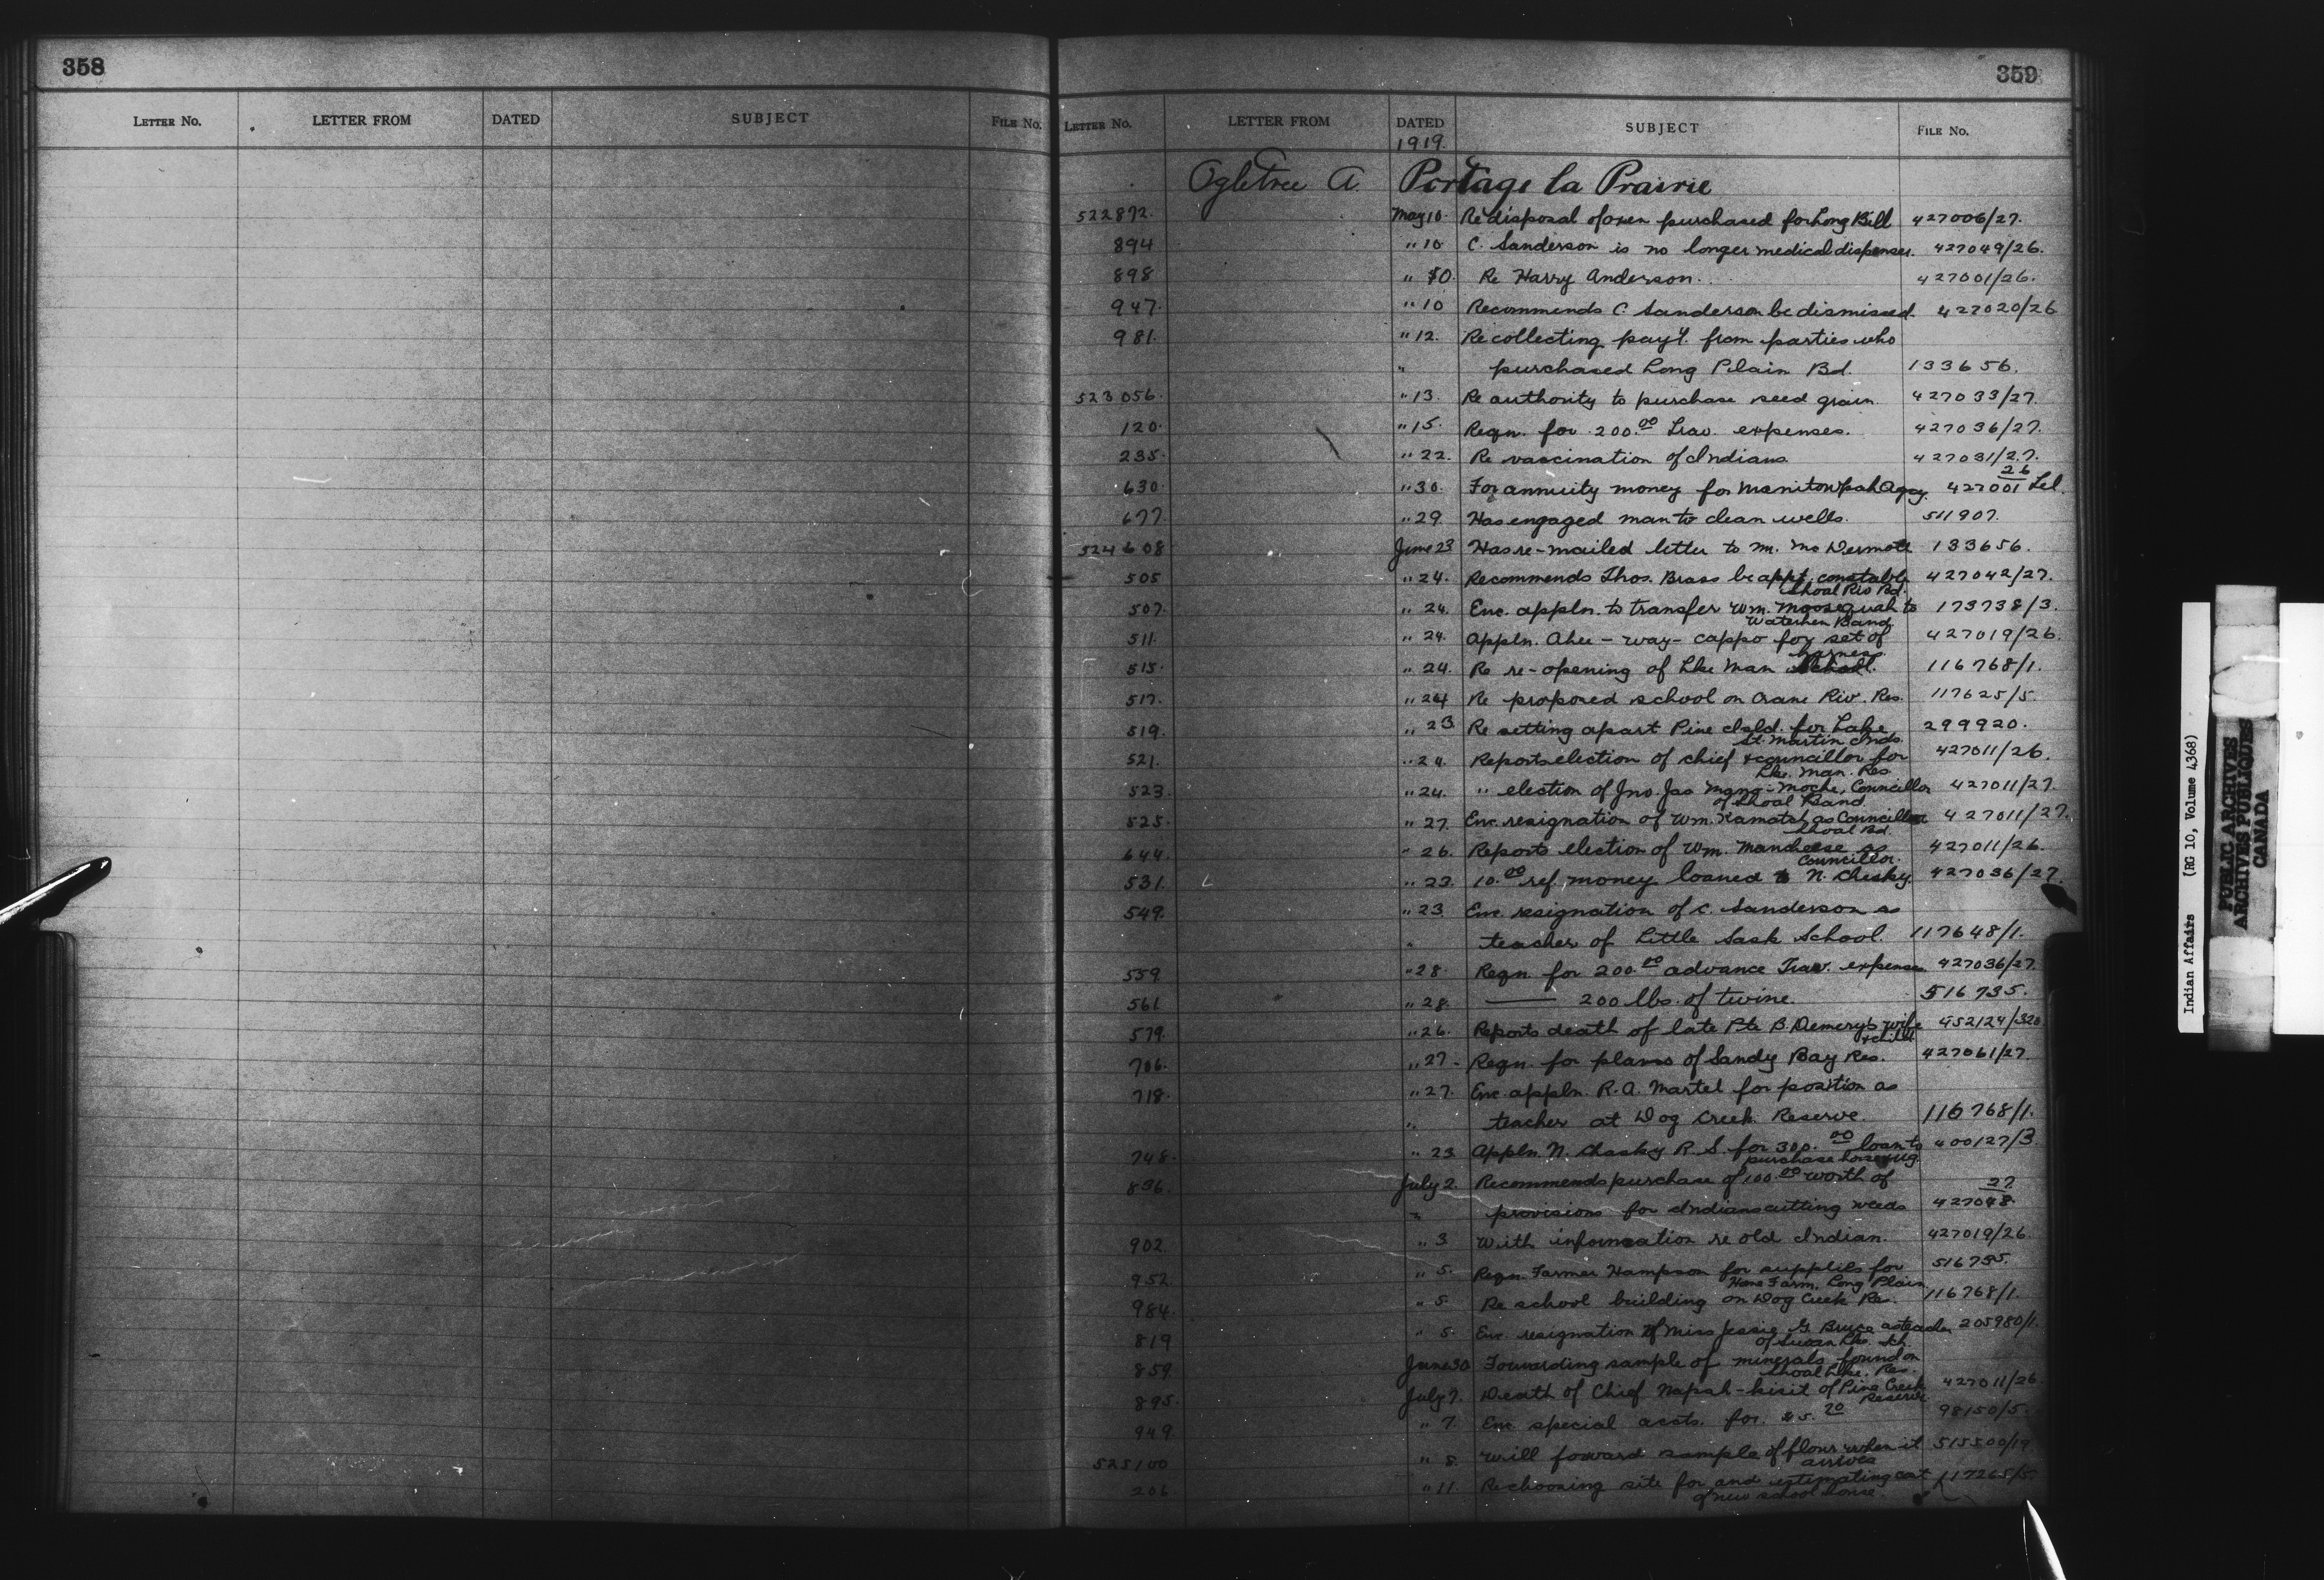 358
359
LETTER NO. LETTER FROM DATED SUBJECT FILE NO.
LETTER NO. LETTER FROM DATED SUBJECT FILE NO.
1919.
Ogletree A. Portage la Prairie
522872. May 10. Re disposal of oxen purchased for Long Bill 427006/27.
894 " 10 C. Sanderson is no longer medical dispenser. 427049/26.
898 " 10. Re Harry Anderson. 427001/26.
947. " 10 Recommends C. Sanderson be dismissed. 427020/26
981. " 12. Re collecting pay't. from parties who
" purchased Long Plain Bd. 133656.
523056. " 13. Re authority to purchase seed grain. 427033/27.
120. " 15. Reqn. for 200.00 Trav. expenses. 427036/27.
235. " 22. Re vaccination of Indians 427031/27.
26
630. " 30. For annuity money for Manitowpah Agcy. 427001 Tel.
677. " 29. Has engaged man to clean wells. 511907.
524608 June 23 Has re-mailed letter to M. McDermott 133656.
505 " 24. Recommends Thos. Brass be appt. constable 427042/27.
Shoal Riv Bd.
507. " 24. Enc. appln. to transfer Wm. Moosequah to 173738/3.
Waterhen Band.
511. " 24. Appln. Ahee-way-cappo for set of 427019/26.
harness.
515. " 24. Re re-opening of Lke Man School. 116768/1.
517. " 24 Re proposed school on Crane Riv. Res. 117625/5
519. " 23 Re setting apart Pine Isld. for Lake 299920.
St. Martin Inds.
521. " 24. Reports election of chief & councillor for 427011/26.
Lke. Man. Res.
523. " 24. " election of Jno. Jas Mana-moche, Councillor 427011/27.
of Shoal Band.
525. " 27. Enc. resignation of Wm. Kamatch as Councillor 427011/27.
Shoal Bd.
644. " 26. Reports election of Wm. Mancheese as 427011/26.
Councillor.
531. " 23. 10.00 ref. money loaned to N. Chesky. 427036/27.
549. " 23 Enc. resignation of C. Sanderson as
" teacher of Little Sask School. 117648/1.
559 " 28. Reqn. for 200.00 advance Trav. expenses 427036/27.
561 " 28. —— 200 lbs. of twine. 516735.
579. " 26. Reports death of late Pte B. Demery's wife 452124/320
& child
706. " 27 - Reqn. for plans of Sandy Bay Res. 427061/27.
718. " 27. Enc. appln. R. A. Martel for position as
" teacher at Dog Creek Reserve. 116768/1.
748. " 23 Appln. N. Chasky R. S. for 300.00 loan to 400127/3
purchase horse & rig.
836. July 2. Recommends purchase of 100.00 worth of 27
" provisions for Indians cutting weeds 427048
902 " 3 With information re old Indian. 427019/26.
952 " 5. Reqn. Farmer Hampson for supplies for 516735.
Home Farm, Long Plain
984. " 5. Re school building on Dog Creek Res. 116768/1.
819 " 5. Enc. resignation of Miss Jessie G. Bruce as teacher 205980/1.
of Swan Lke. Sch.
859 June 30 Forwarding sample of minerals found on
Shoal Lke. Res.
895. July 7. Death of Chief Napah-kisit of Pine Creek 427011/26
Reserve.
949 " 7. Enc. special accts. for 98150/5.
525100 " 8. Will forward sample of flour when it 515500/19
arrives
206 " 11. Re choosing site for and estimating cost 117265/5.
of new school house.
Indian Affairs (RG 10, Volume 4368)
PUBLIC ARCHIVES
ARCHIVES PUBLIQUES
CANADA